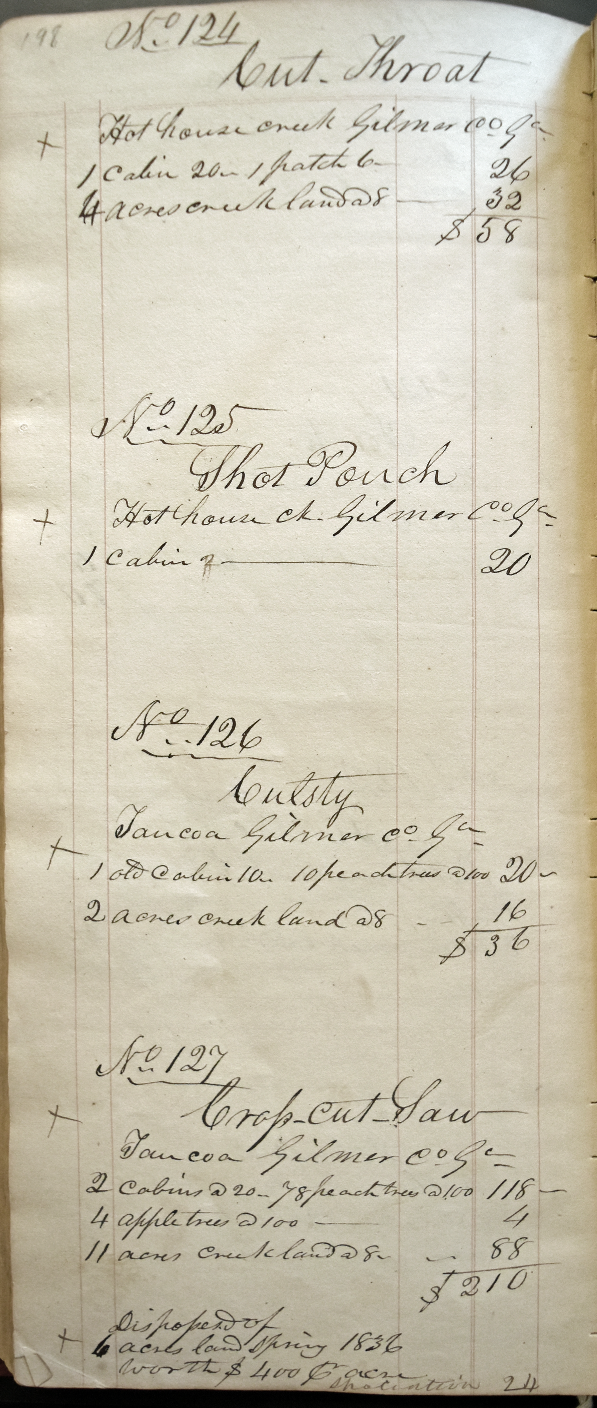 198
No. 124
Cut-Throat
+ Hot house creek Gilmer Co Ga
1 cabin 20- 1 patch 6- 26
4 acres creek land @ 8 - 32
$ 58
No. 125
Shot Pouch
+ Hot house ck. Gilmer Co Ga
1 cabin 20
No. 126
Culsty
Taucoa Gilmer Co Ga
+
1 old cabin 10- 10 peach trees @ 100 20-
2 acres creek land @ 8 - 16
$ 36
No. 127
+ Crop-cut-Saw
Taucoa Gilmer Co Ga
2 cabins @ 20- 78 peach trees @ 100 118-
4 apple trees @ 100 - 4
11 acres creek land @ 8- - 88
$ 210
Disposed of
+ 6 acres land Spring 1836
worth $ 400 pr acre
spoliation 24